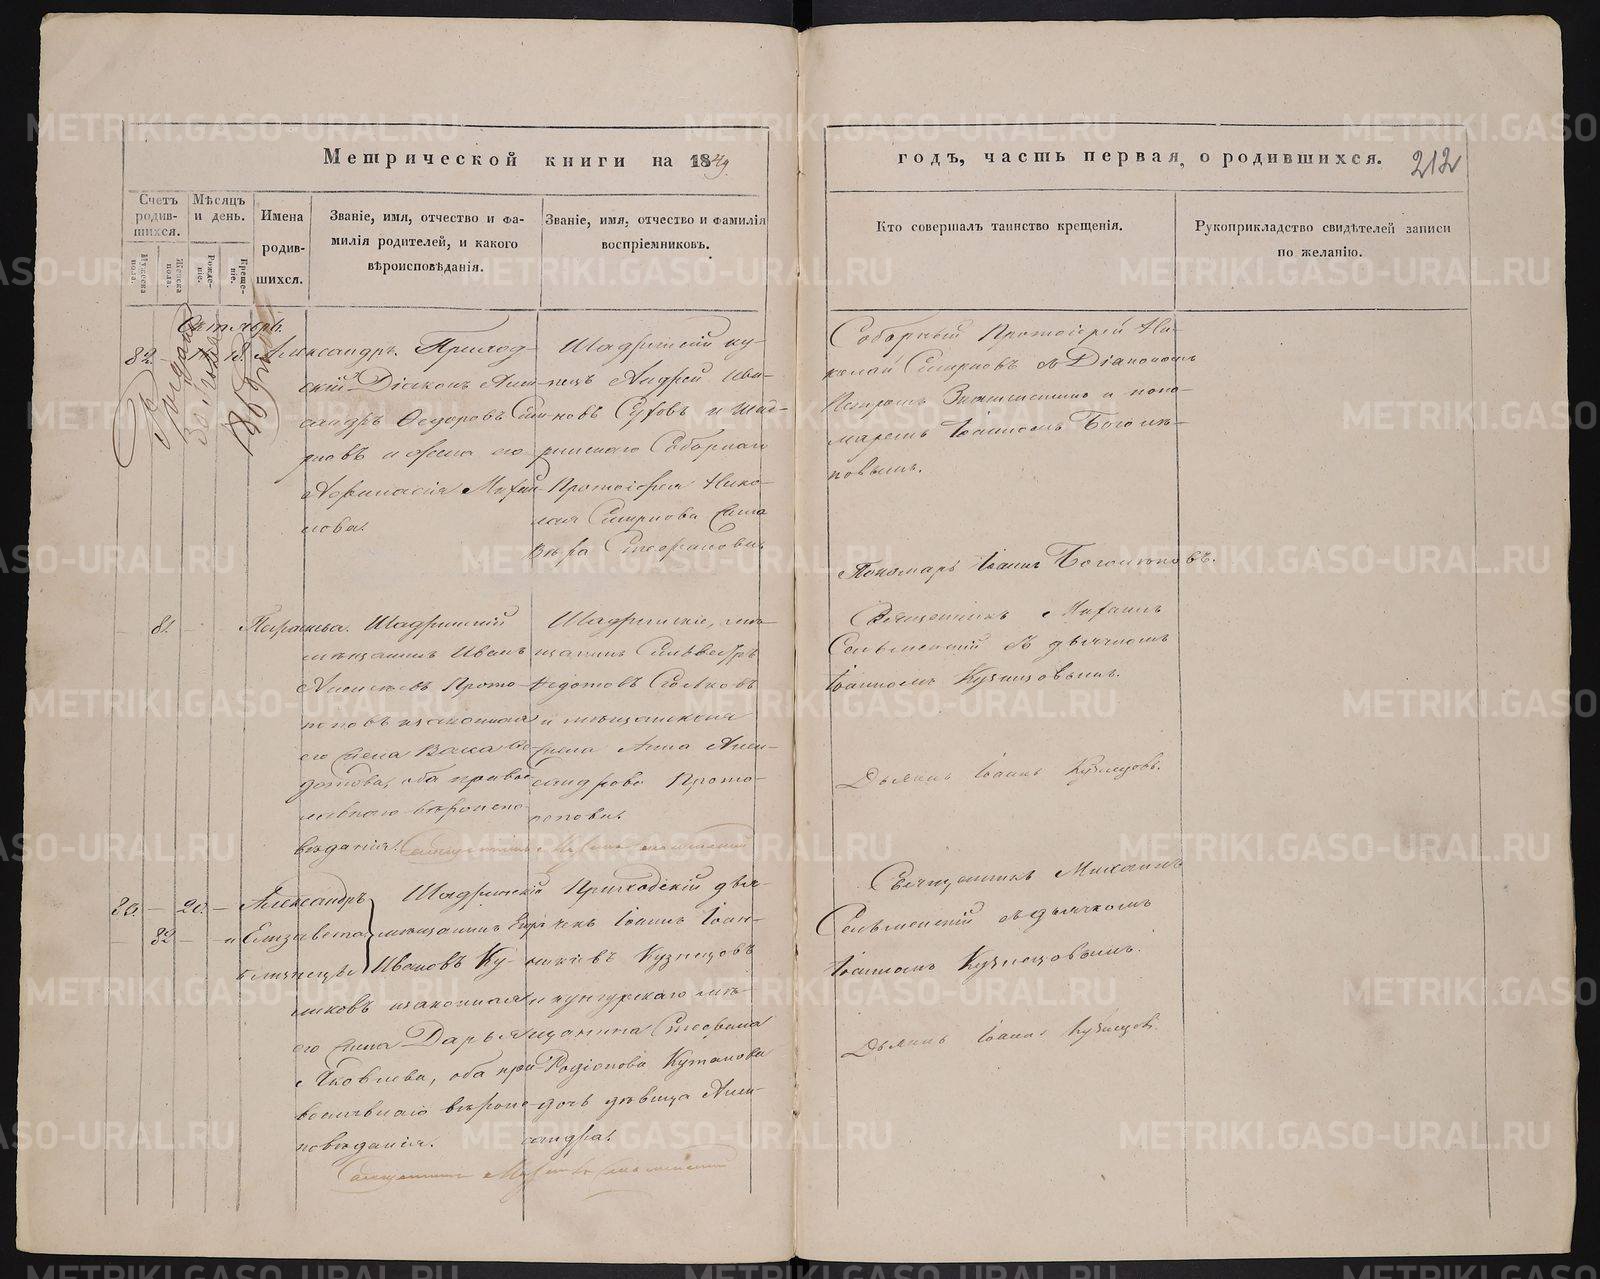 Метрической книги на 1849
годъ, часть первая, о родившихся.
212
Счетъ родив-шихся.
Мужеска пола.
Женска пола.
Мѣсяцъ и день.
Рожде-ніе.
Креще-ніе.
Имена
родив-
шихся.
Званіе, имя, отчество и фа-
милія родителей, и какого
вѣроисповѣданія.
Званіе, имя, отчество и фамилія
воспріемниковъ.
Кто совершалъ таинство крещенія.
Рукоприкладство свидѣтелей записи
по желанію.
Октябрь.
82.
Александръ.
Приход-
скій Діаконъ Алек-
сандръ Ѳедоровъ Смир-
новъ и жена его
Михай-
лова.
Шадринскій ку-
пецъ Андрей Ива-
новъ и Шад-
ринскаго Соборнаго
Протоіерея Нико-
лая Смирнова жена
Вѣра Стефановна
Соборный Протоіерей Ни-
колай Смирновъ съ Діакономъ
Петромъ и поно-
маремъ Іоанномъ
Пономарь Іоаннъ
81.
Параскева.
Шадринскій
мѣщанинъ Иванъ
Алексѣевъ Прото-
поповъ и законная
его жена Васса Ѳе-
дотова, оба право-
славнаго вѣроиспо-
вѣданія.
Шадринскіе, мѣ-
щанинъ Сильвестръ
Ѳедотовъ
и мѣщанская
жена Анна Алек-
сандрова Прото-
попова.
Священникъ Михаилъ
съ дьячкомъ
Іоанномъ Кузнецовымъ.
Дьячекъ Іоаннъ Кузнецовъ.
Священникъ
20.
82
Александръ
и Елизавета
близнецы
Шадринскій
мѣщанинъ
Ивановъ Ку-
ликовъ и законная
его жена Дарья
Яковлева, оба пра-
вославнаго вѣроис-
повѣданія.
Приходскій дья-
чекъ Іоаннъ Іоан-
никіевъ Кузнецовъ
и кунгурскаго мѣ-
щанина Стефана
Родіонова
дочь дѣвица Алек-
сандра.
Священникъ Михаилъ
съ дьячкомъ
Іоанномъ Кузнецовымъ.
Дьячекъ Іоаннъ Кузнецовъ.
Священникъ
METRIKI.GASO-URAL.RU